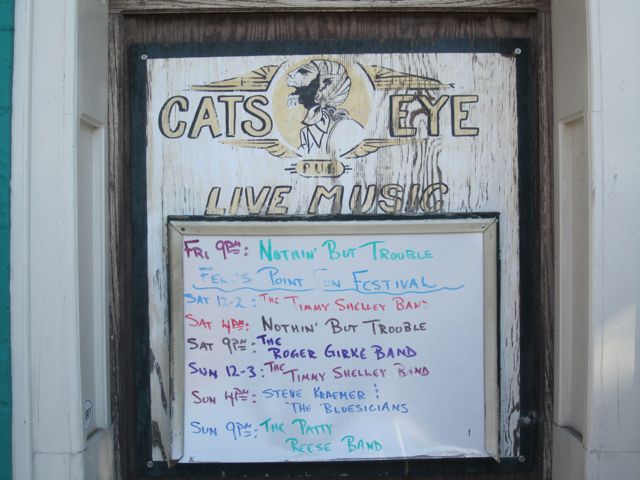 CATS EYE
PUB
LIVE MUSIC
FRI 9PM: NOTHIN' BUT TROUBLE
FELL'S POINT FUN FESTIVAL
SAT 12-2: THE TIMMY SHELLEY BAND
SAT 4PM: NOTHIN' BUT TROUBLE
SAT 9PM: THE
ROGER GIRKE BAND
SUN 12-3: THE TIMMY SHELLEY BAND
SUN 4PM: STEVE KRAEMER &
THE BLUESICIANS
SUN 9PM: THE PATTY
REESE BAND